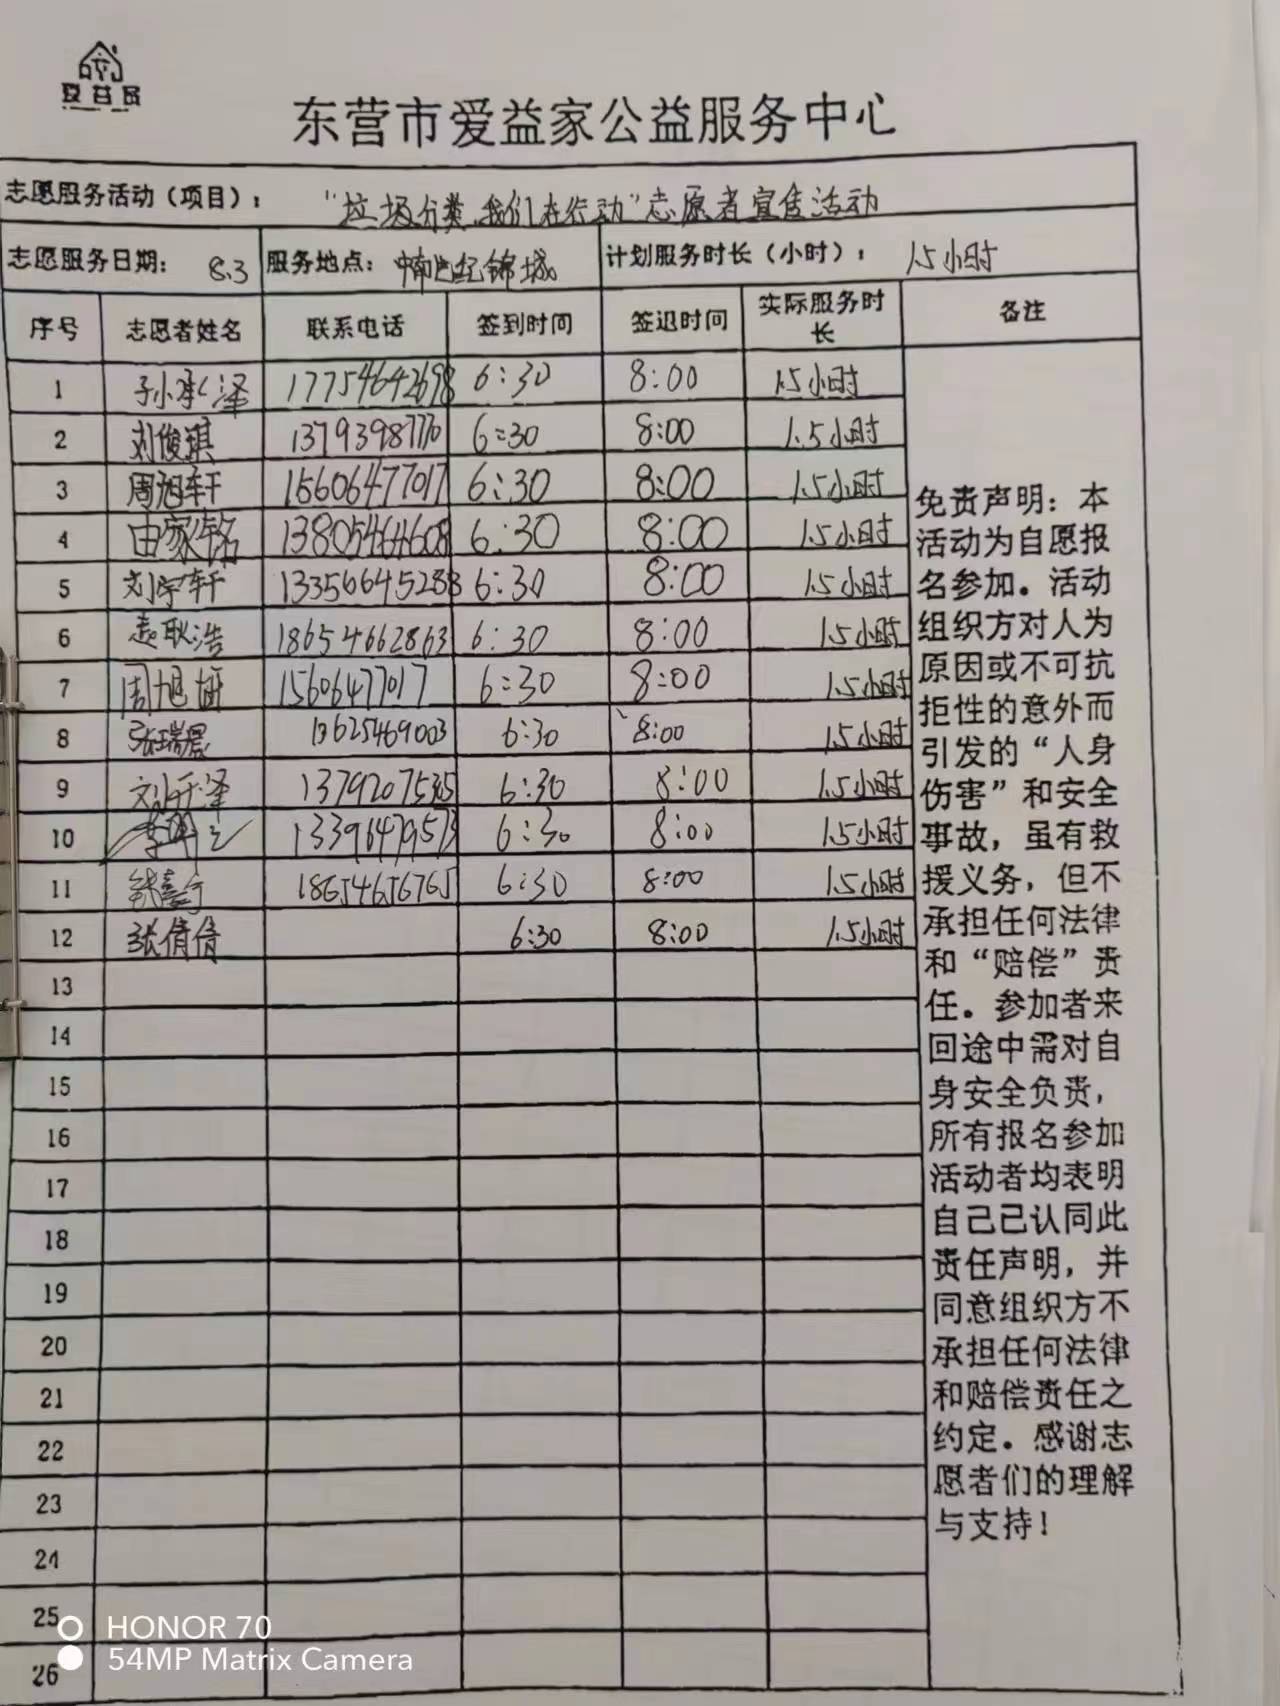 爱益家
东营市爱益家公益服务中心
志愿服务活动（项目）： “垃圾分类,我们在行动”志愿者宣传活动
志愿服务日期： 8.3 服务地点： 世纪锦城 计划服务时长（小时）： 1.5小时
序号 志愿者姓名 联系电话 签到时间 签退时间 实际服务时长 备注
1 17754642698 6:30 8:00 1.5小时
2 刘俊琪 13793987770 6:30 8:00 1.5小时
3 周旭轩 15606477017 6:30 8:00 1.5小时
4 由家铭 13805464608 6:30 8:00 1.5小时
5 刘宇轩 13356645288 6:30 8:00 1.5小时
6 18654662863 6:30 8:00 1.5小时
7 周旭妍 15606477017 6:30 8:00 1.5小时
8 张瑞晨 6:30 8:00 1.5小时
9 6:30 8:00 1.5小时
10 13396479573 6:30 8:00 1.5小时
11 18654656765 6:30 8:00 1.5小时
12 张倩倩 6:30 8:00 1.5小时
13
14
15
16
17
18
19
20
21
22
23
24
25
26
免责声明：本
活动为自愿报
名参加。活动
组织方对人为
原因或不可抗
拒性的意外而
引发的“人身
伤害”和安全
事故，虽有救
援义务，但不
承担任何法律
和“赔偿”责
任。参加者来
回途中需对自
身安全负责，
所有报名参加
活动者均表明
自己已认同此
责任声明，并
同意组织方不
承担任何法律
和赔偿责任之
约定。感谢志
愿者们的理解
与支持！
HONOR 70
54MP Matrix Camera